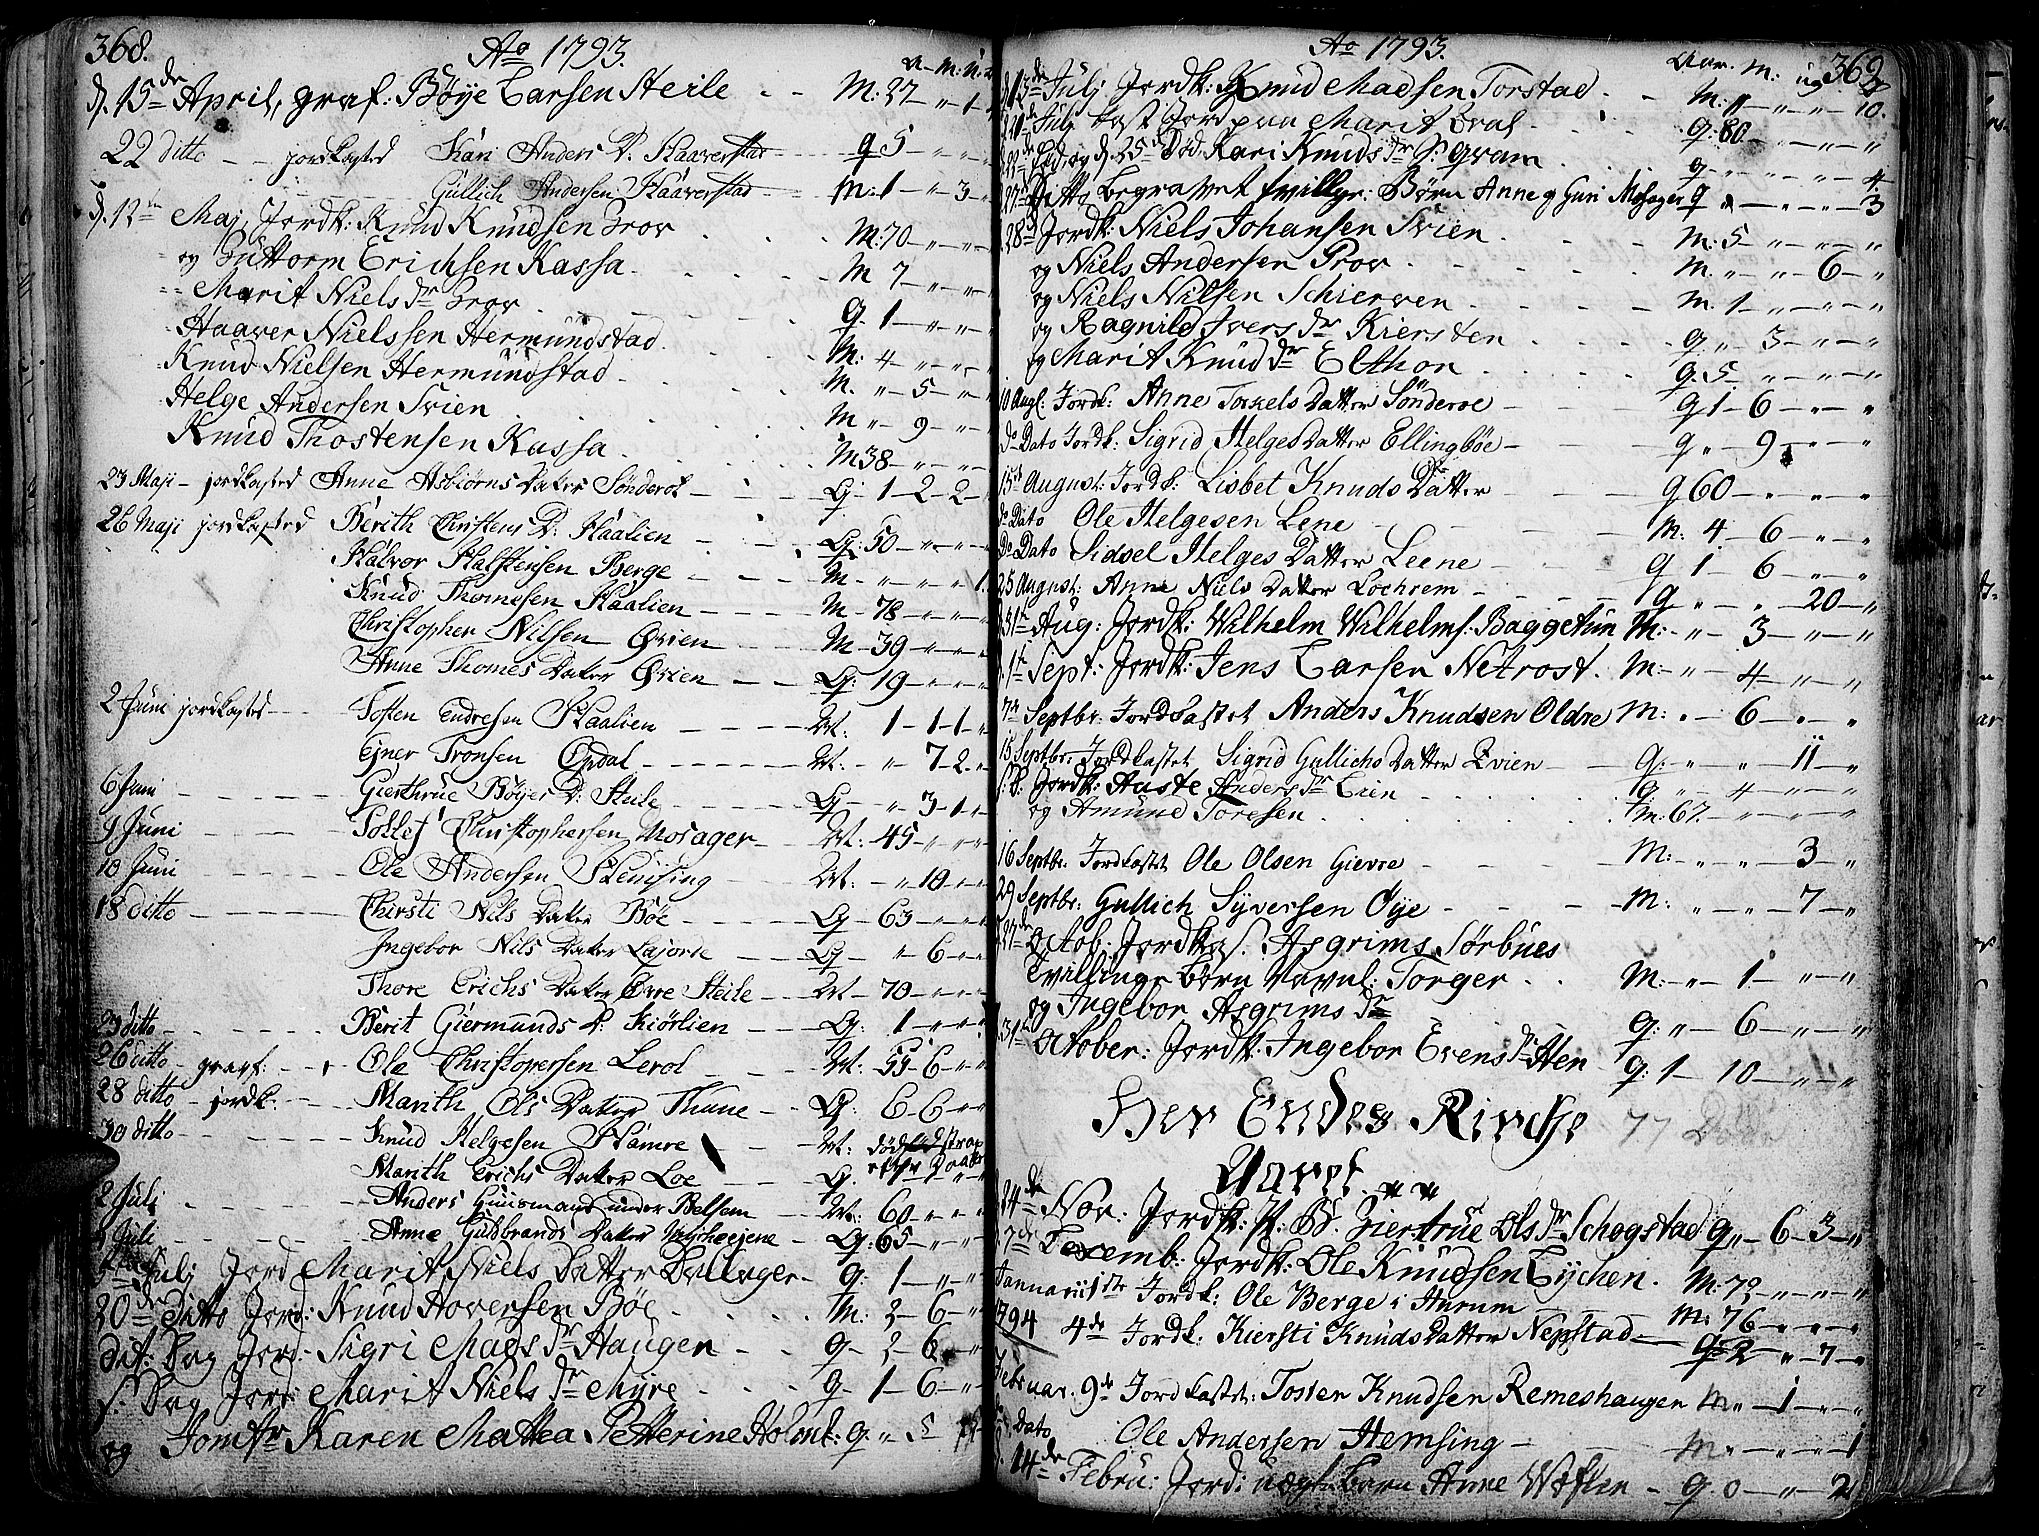 368.
Ao 1793.
A. M. U. D
d. 15de April, graf: Bøye Larsen Steile - - M: 27 - „ 1 -
22 ditto - - jordkasted Kari Anders D. Haaverstad - Q 5 - „ - „ -
Gullich Andersen Haaverstad - M: 1 - „ 3 - „
d. 12te Maj Jordk: Knud Knudsen Grov M: 70 - „ - „ - „
og Guttorm Erichsen Kassa. M 7 - „ - „ - „
Marit Niels Dr Grov Q 1 - „ - „ - „
Haaver Nielssen Hermundstad. M: 4 - „ - „ - „
Knud Nielsen Hermundstad M. „ - 5 - „ - „
Helge Andersen Svien M „ - 9 - „ - „
Knud Thostensen Kassa M 38 - „ - „ - „
23 Maji - jordkasted Anne Asbiørns Dater Sønderøl - Q - 1 - 2 - 2 -
26 Maji jordkasted Berith Christens D: Haalien - - Q: 50 - „ - „ - „
Halvor Halstensen Berge - - - M - „ - „ - „ - 1.
Knud Thomesen Haalien - - - - M - 78 - „ - „ - „
Christopher Nilsen Qvien - - M - 39 - „ - „ - „
Anne Thomes Dater Qvien - - - Q: 19 - „ - „ - „
2 Juni jordkasted - - Tosten Endresen Haalien - - - - M. 1 - 1 - 1 - „
Ejner Tronsen Opdal - - - - - M. - „ - 7 - 2 - „
6 Juni - - - - Gierthrue Bøyes D: Steile - - - - Q - „ - 3 - 1 - „
9 Juni - - - Sollef Christophersen Mosager - - M. - 45 - „ - „ - „
10 Juni - - - - Ole Andersen Hemsing - - M. - „ 10 - „ - „
18 ditto - - - - Chirsti Nils Dater Bøe - - - Q - 63 - „ - „ - „
Ingebor Nils Dater - - Q - „ - 6 - „ - „
Thore Erichs Dater Øvre Steile - - M - 70 - „ - „ - „
23 ditto - - - - Berit Giermunds D: Kiørlien - - - Q: 1 - „ - „ - „
26 ditto - graf: - - Ole Christopersen Lerol - - - M. 55 - 6 - „ - „
28 ditto - jordk: - - Marith Ols Dater Thune - - - Q: 6 - 6 - „ - „
30 ditto - - - - - Knud Helgesen Hamre - M: død strax
efter Daaben
Marith Erichs Dater Loe - - - Q. „ - 1 - „ - „
2 Juli - - - Anders Huusmand under Belsem - - M: 60 - „ - „ - „
Juli - - - Anne Guldbrands Dater - - Q: 65 - „ - „ - „
Julj Jord Marit Niels Datter - Q: 1 - „ - „
20de Ditto Jord: Knud Hoversen Bøe. M: 2 - 6 - „
dit: Dag Jord: Sigri Mads Dr Haugen - - Q - 2 - 6 - „
s: Dag Jord: Marit Niels Dr Myre - - - Q - 1 - 6 - „
og Jomfr Karen Mattea Petterine Holmb: Q „ 5
Ao 1793.
Aar. M: U D
369
Julj Jordk: Knud Madsen Torstad. - M: „ - „ - „ - 10.
Julj kast Jord paa Marit Q: 80. - „ - „ - „
Fød, og d. 25de Død, Kari Knuds Dr S: qvam Q - „ - „ - „ - 4.
Ditto Begravet Tvillgr: Børn Anne og Guri Mosager Q „ - „ - „ - 3
28de Jordk: Niels Johansen Svien. M: 5 - „ - „ - „
og Niels Andersen Prov - M. „ - „ - 6 - „
og Niels Nilsen Schierven - M: 1 - „ - „ - „
og Ragnild Ivers Dr Kiersten Q. „ - 3 - „ - „
og Marit Knud Dr Elthon Q: 5 - „ - „ - „
10 Augl. Jordk: Anne Torkels Datter Sønderoe - - Q 1 - 6 - „ - „
do Dato Jordk: Sigrid Helges Datter Ellingbøe - Q „ - 9 - „ - „
15de August: Jordk: Lisbet Knuds Datter Q 60 - „ - „ - „
do Dato Ole Helgesen Lene - M: 4 - 6 - „ - „
Do Dato Sidsel Helges Datter Leene - - Q 1 6 - „ - „
25 August: Anne Niels Datter Lochrem - - Q „ - „ - 20 - „
31te Aug: Jordk: Wilhelm Wilhelms: Baggetun M: - „ - 3 - „ - „
1te Sept: Jordk: Jens Larsen Netrost. M: - „ - 4 - „ - „
7de Septbr: Jordkastet Anders Knudsen Oldre M: „ - 6 - „ - „
15 Septbr: Jordkastet Sigrid Gullichs Datter Qvien - Q: - „ - „ - 11 - „
s: D. Jordk: Aaste Anders Dr Lien Q „ - 4 - „ - „
og Amund Toresen M: 67. - „ - „ - „
16 Septbr: Jordkastet Ole Olsen Gierre - M: - „ - „ - 3 - „
29 Septbr: Gullich Syversen Øye - - M: „ - „ - 7 - „
27de Octob: Jordkas: Asgrims Sørbües
Tvillinge Børn Navnl: Torger . . M: - „ - 1 - „ - „
og Ingebor Asgrims Dr Q: „ - 6 - „ - „
31te October: Jordk: Ingebor Evens Dr Hen Q: 1 - 10 - „ - „
Her Endes Kirche 77 Døde
Aaret.
24de Nov: Jordk: P. B. Giertrue Ols Dr Schogstad Q „ - 6 - 3 - „
7de Decemb: Jordk: Ole Knudsen Lychen. M: 73 - „ - „ - „
Januarii 1ste Jordk: Ole Berge i Hurum M: 76 - „ - „ - „
1794 4de Jordk: Kiersti Knuds Datter Nepstad - Q 2 „ - 7 - „
Februar. 9de Jordkastet: Tosten Knudsen Remeshaugen M „ - 1 - „ - „
do Dato Ole Andersen Hemsing - M „ - „ - „ - 1
14de Febru: Jord: uægt: Barn Anne Q 0 - „ - 2